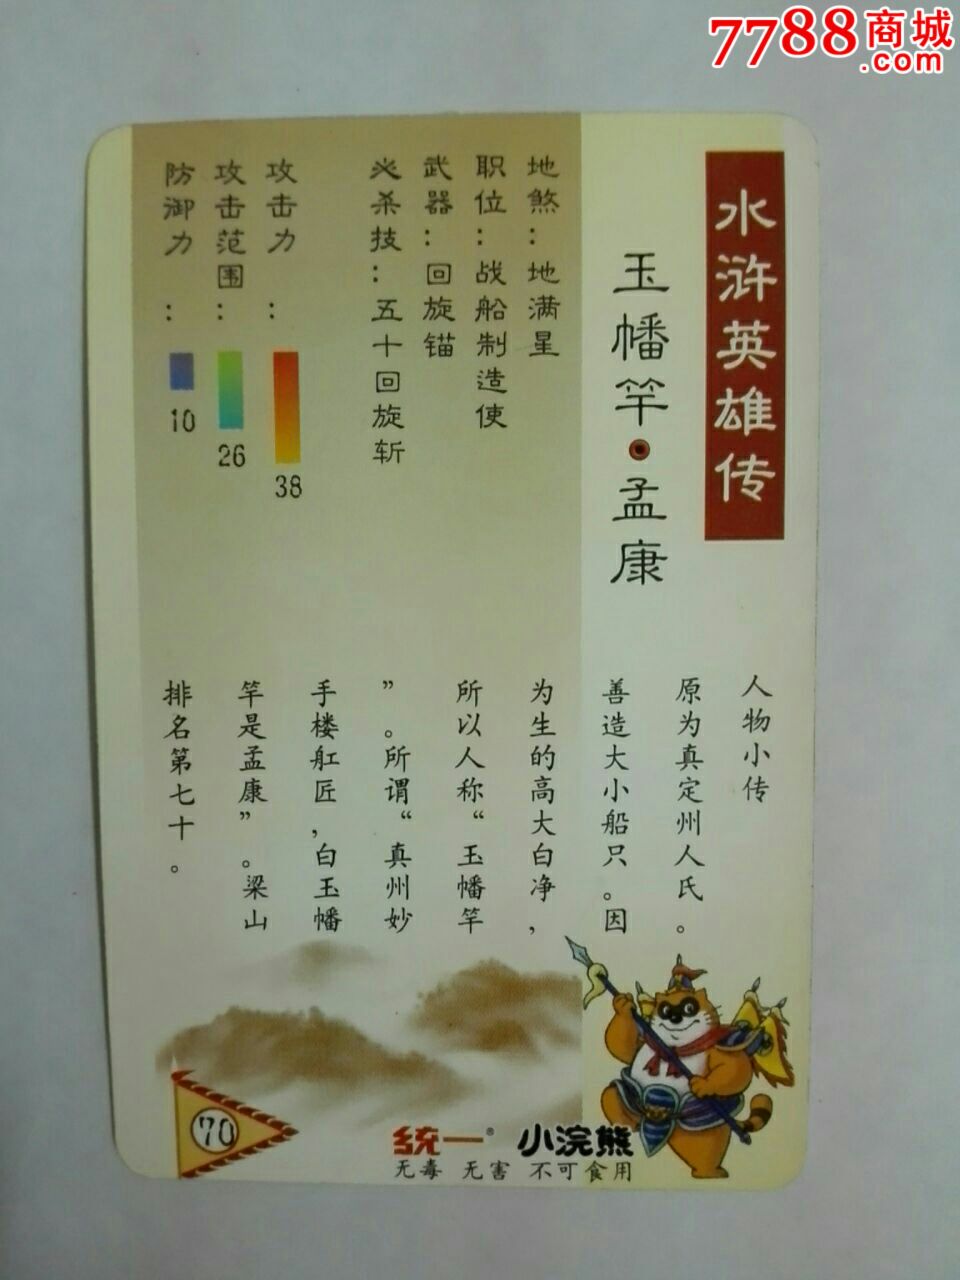 7788商城
.com
水浒英雄传
玉幡竿·孟康
地煞：地满星
职位：战船制造使
武器：回旋锚
必杀技：五十回旋斩
攻击力：
38
攻击范围：
26
防御力：
10
人物小传
原为真定州人氏。
善造大小船只。因
为生的高大白净，
所以人称“玉幡竿
”。所谓“真州妙
手楼舡匠，白玉幡
竿是孟康”。梁山
排名第七十。
70
统一® 小浣熊
无毒 无害 不可食用